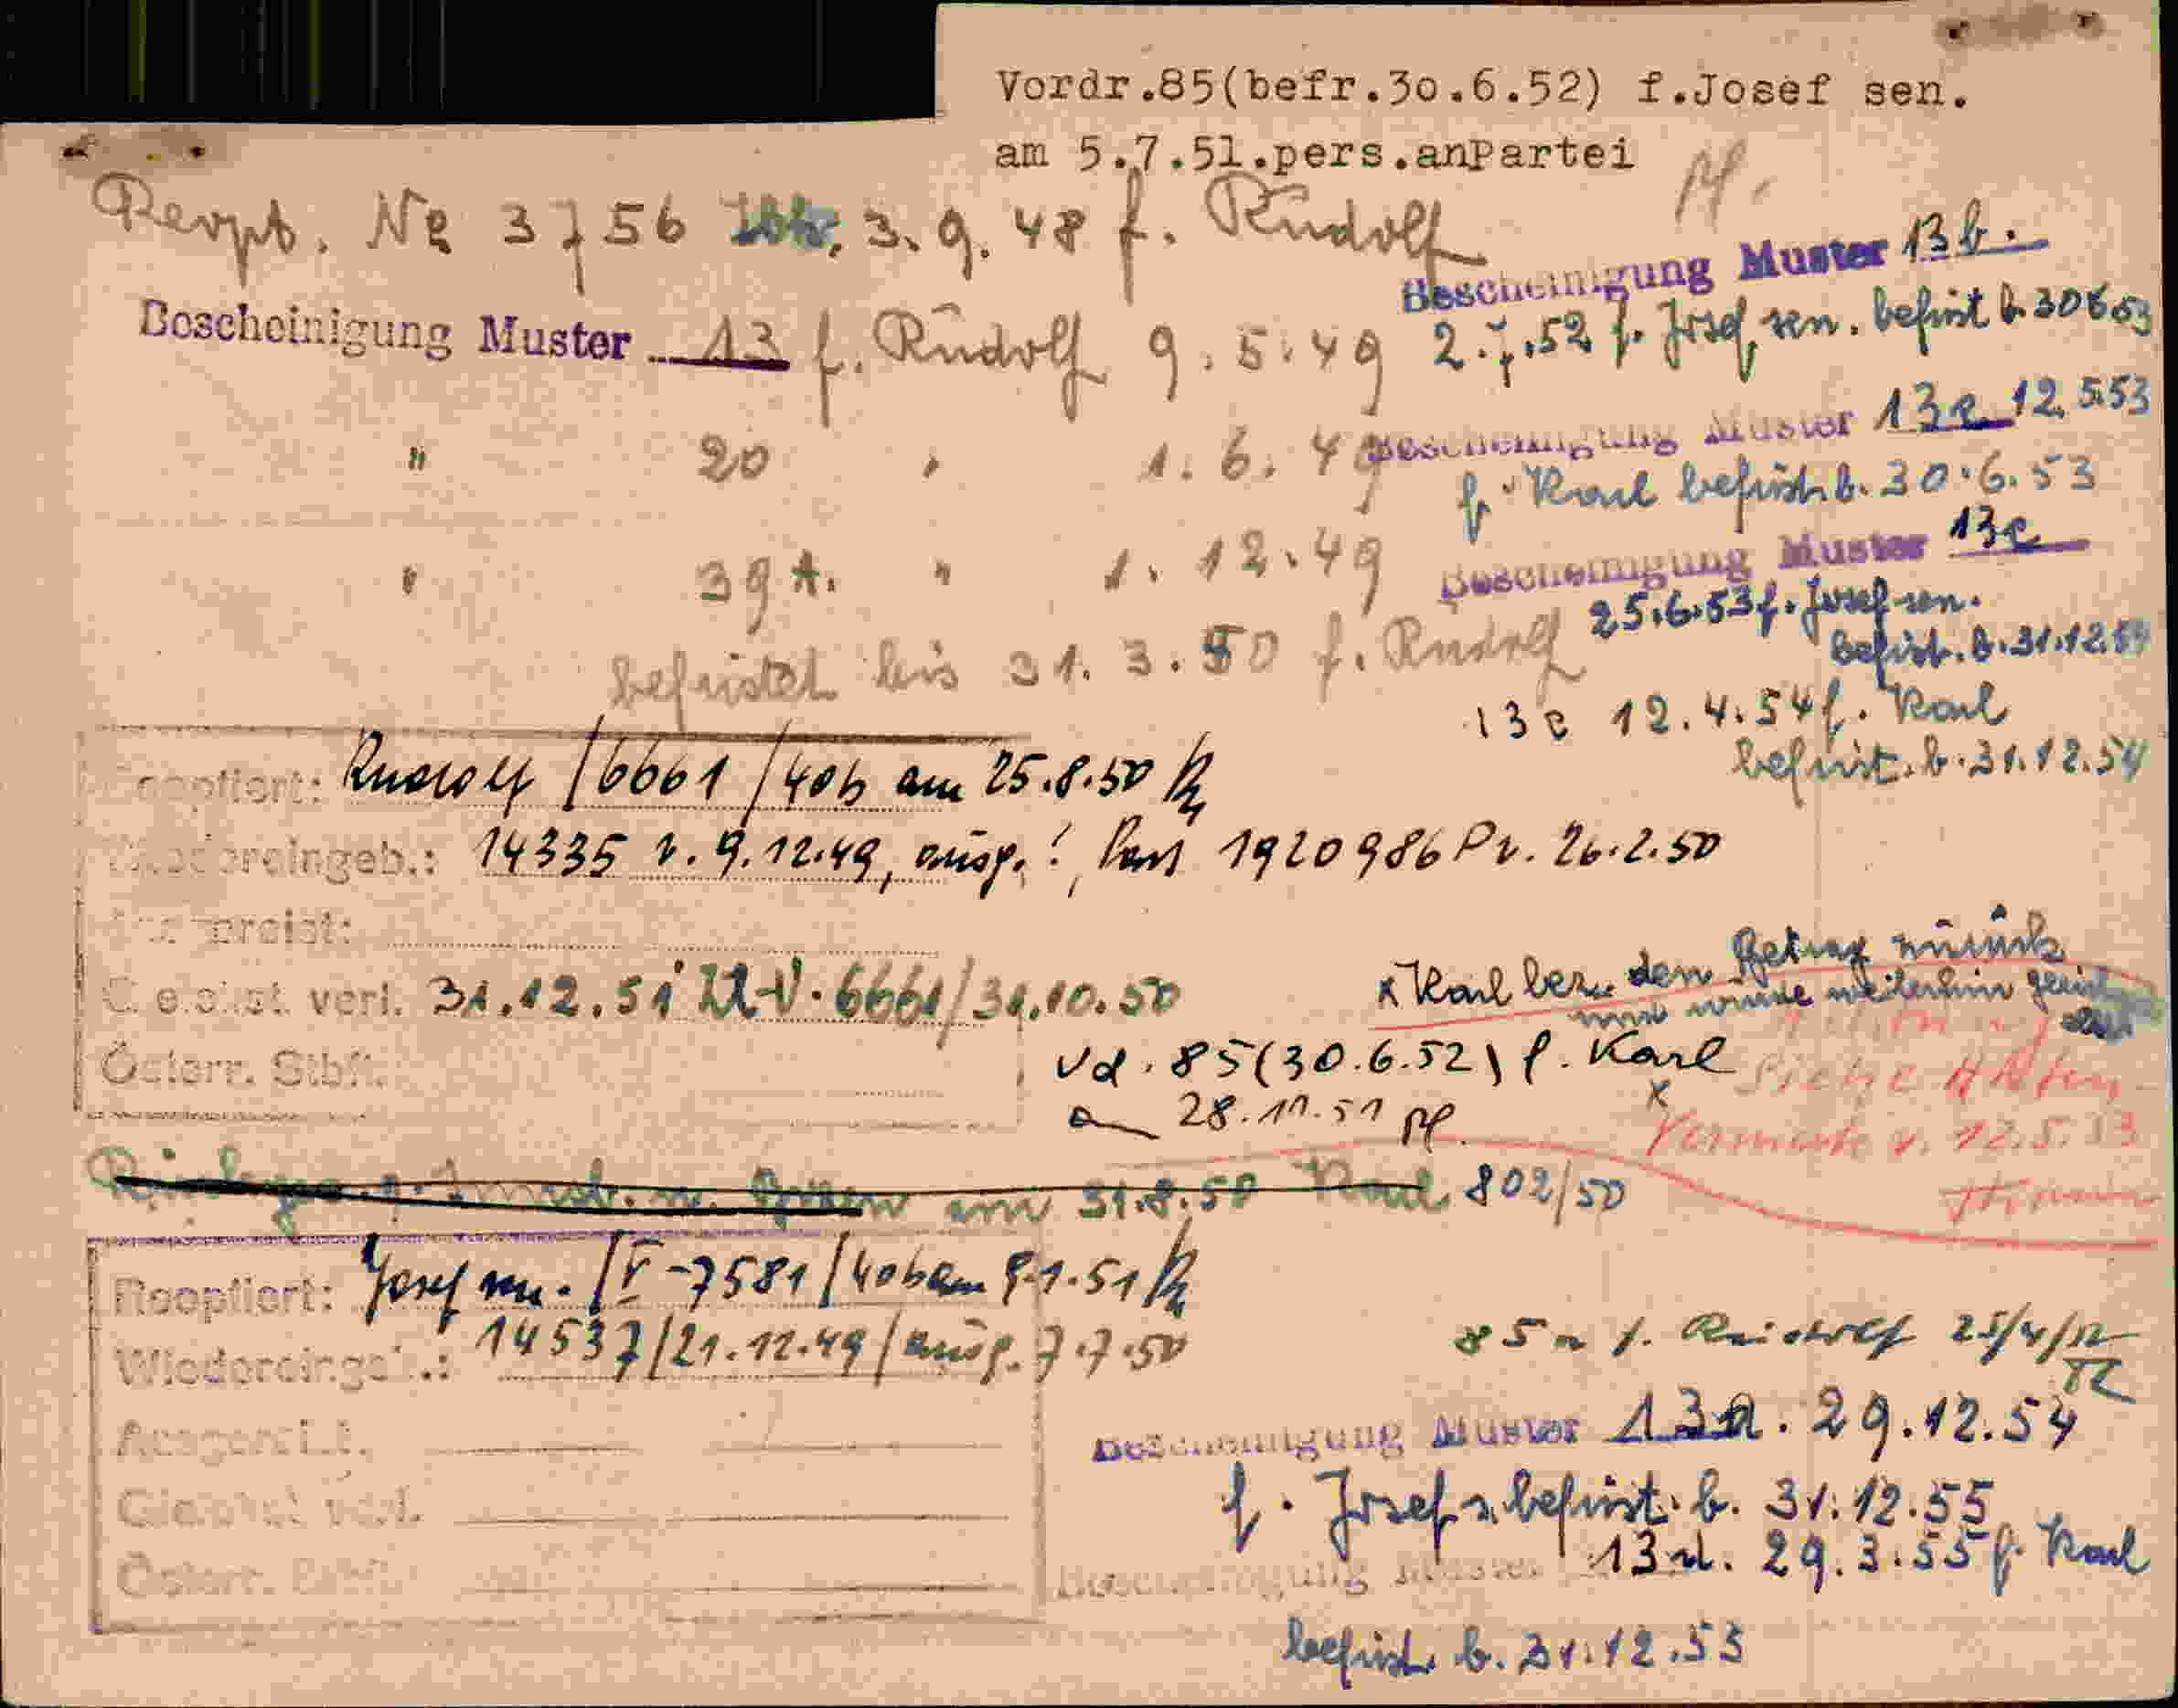 Vordr.85(befr.30.6.52) f.Josef sen.
am 5.7.51.pers.anPartei
Reopt. No 3756 3.9.48 f. Rudolf
Bescheinigung Muster 13 f. Rudolf 9.5.49
" 20 " 1.6.49
" 39 A. " 1.12.49
befristet bis 31.3.50 f. Rudolf
Bescheinigung Muster 13 b.
2.7.52 f. Josef sen. befrist b. 30653
Bescheinigung Muster 13c 12.5.53
f. Karl befrist. b. 30.6.53
Bescheinigung Muster 13c
25.6.53 f. Josef sen.
befrist. b. 31.12.
13c 12.4.54 f. Karl
befrist. b. 31.12.54
Reoptiert: Rudolf /6661/40b am 25.8.50
Wiedereingeb.: 14335 v. 9.12.49, ausg.! , Pass 1920986 P v. 26.2.50
Ausgereist:
Gleichst. verl. 31.12.51 6661/31.10.50
Österr. Stbft.
x Karl bez. den Betrag zurück
und wurde weiterhin
Vd. 85(30.6.52) f. Karl
x
28.11.51
Siehe Akten-
Vermerk v. 12.5.53
am 31.8.50 Karl 802/50
Reoptiert: Josef sen. /V-7581/40b am 9.1.51
Wiedereingeb.: 14537/21.12.49/ausg. 7.7.50
Ausgereist.
Gleichst. verl.
Österr. Stbft.
85 a f. Rudolf 25/4/52
Bescheinigung Muster 13a. 29.12.54
f. Josef s. befrist. b. 31.12.55
Bescheinigung Muster 13d. 29.3.55 f. Karl
befrist. b. 31.12.53